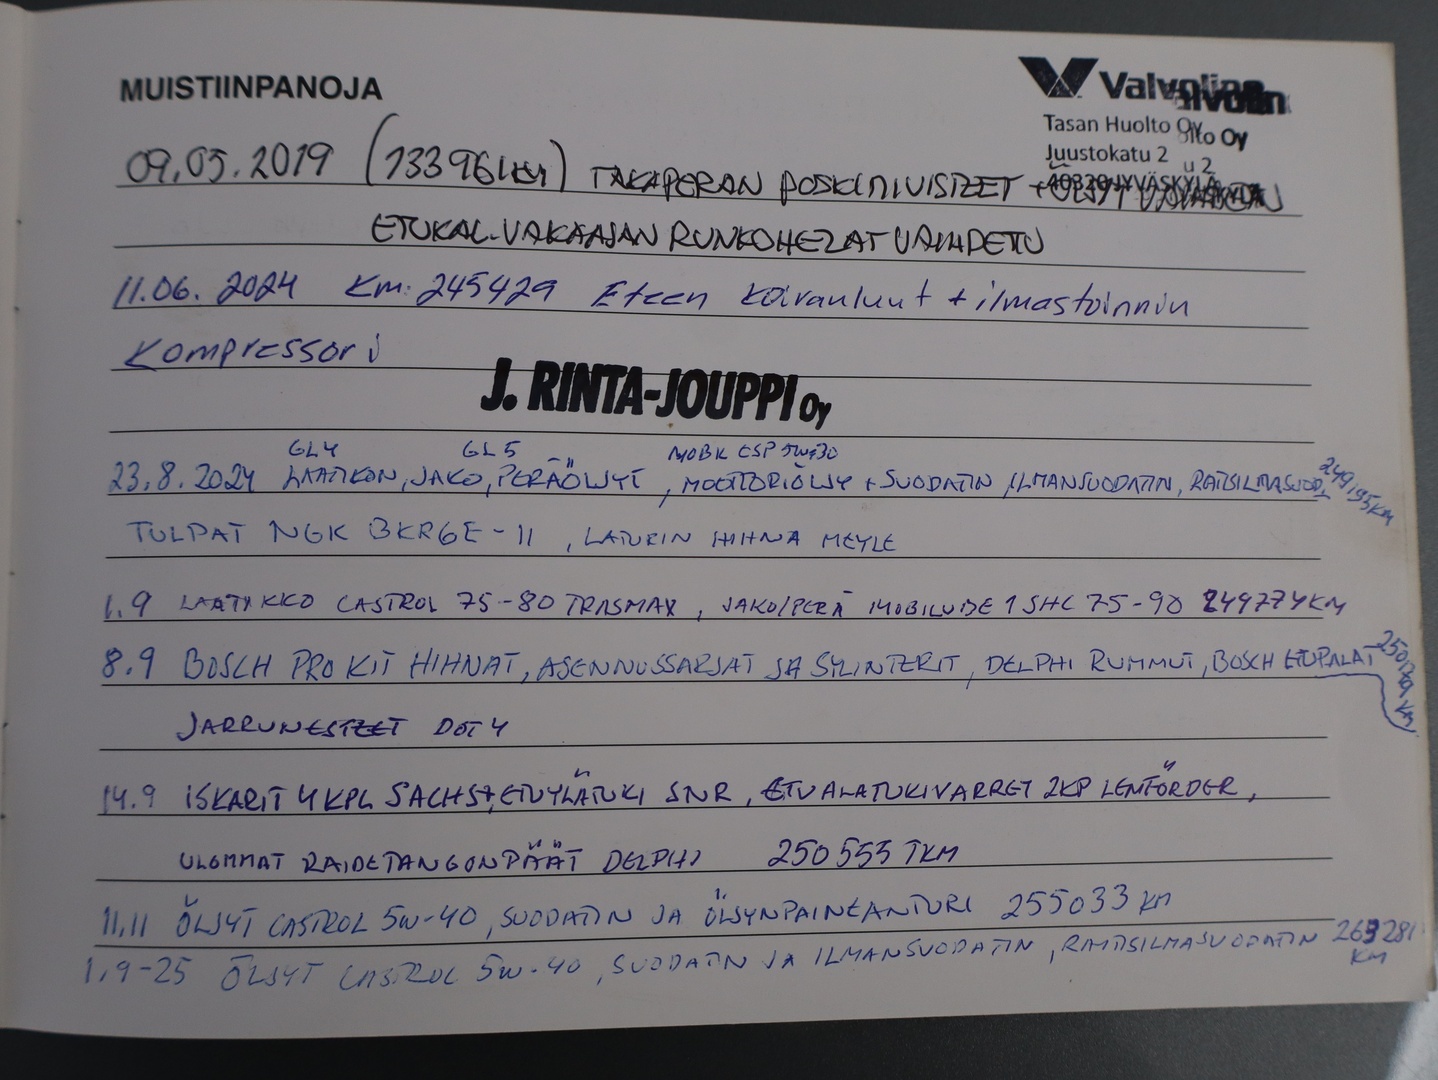 MUISTIINPANOJA
Valvoline
Tasan Huolto Oy
Juustokatu 2
40320 JYVÄSKYLÄ
09.05.2019 (133961km) TAKAPERÄN POSKITIIVISTEET + ÖLJYT VAIHDETTU
ETUKAL.VAKAAJAN RUNKOHELAT VAIHDETTU
11.06. 2024 Km: 245429 Eteen Koiranluut + ilmastoinnin
Kompressori
J. RINTA-JOUPPI Oy
GL4 GL5 MOBIL ESP 5W-30
23.8.2024 LAATIKON, JAKO, PERÄÖLJYT, MOOTTORIÖLJY + SUODATIN, ILMANSUODATIN, RAITISILMASUOD. 249195KM
TULPAT NGK BKR6E-11, LATURIN HIHNA MEYLE
1.9 LAATIKKO CASTROL 75-80 TRASMAX, JAKO/PERÄ MOBILUBE 1 SHC 75-90 249774KM
8.9 BOSCH PRO KIT HIHNAT, ASENNUSSARJAT JA SYLINTERIT, DELPHI RUMMUT, BOSCH ETUPALAT
JARRUNESTEET DOT 4
14.9 ISKARIT 4KPL SACHS+ETUYLÄTUKI SNR, ETUALATUKIVARRET 2KP LEMFÖRDER,
ULOMMAT RAIDETANGONPÄÄT DELPHI 250555 TKM
11.11 ÖLJYT CASTROL 5W-40, SUODATIN JA ÖLJYNPAINEANTURI 255033 KM
1.9-25 ÖLJYT CASTROL 5W-40, SUODATIN JA ILMANSUODATIN, RAITISILMASUODATIN 263281 KM